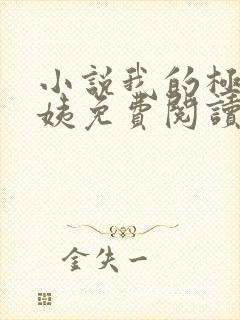 小說我的極
姨免費閱讀
金失一